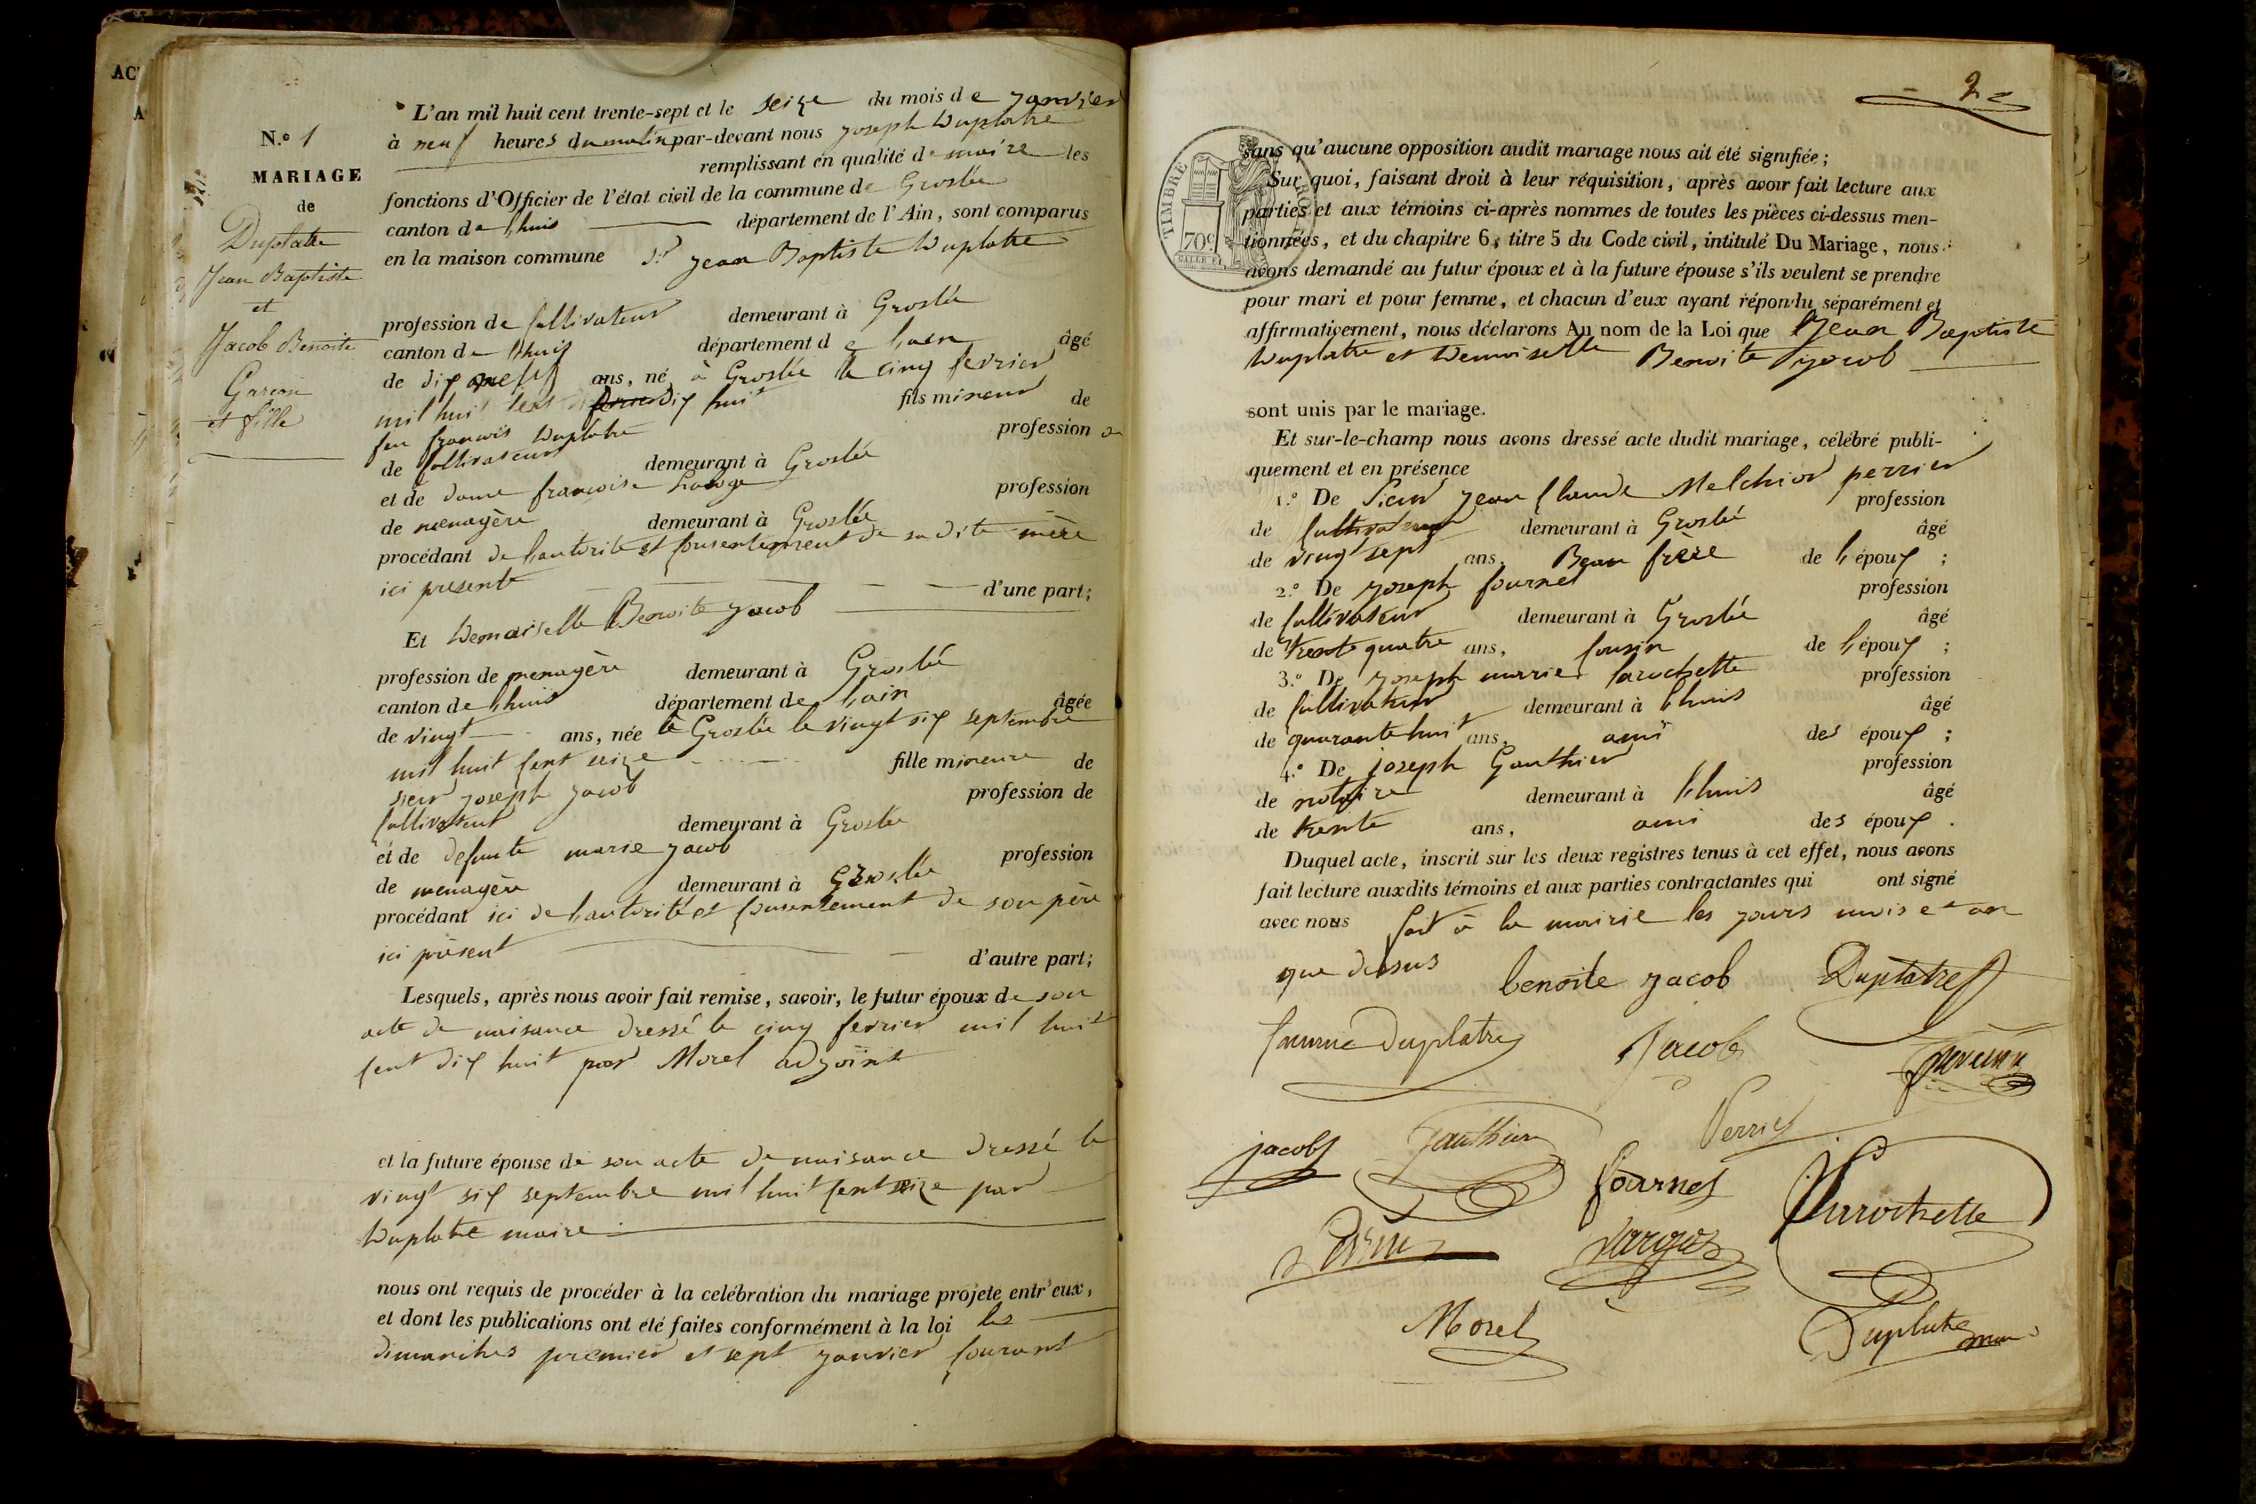 N.º 1
MARIAGE
de
Duplatre
Jean Baptiste
et
Jacob Benoite
Garcon
et fille
L'an mil huit cent trente-sept et le seize du mois de janvier
à neuf heures du matin par-devant nous joseph Duplatre
remplissant en qualité de maire les
fonctions d'Officier de l'état civil de la commune de Groslée
canton de lhuis département de l'Ain, sont comparus
en la maison commune Sr jean Baptiste Duplatre
profession de Cultivateur demeurant à Groslée
canton de lhuis département de lain âgé
de dix neuf ans, né à Groslée le cinq fevrier
mil huit cent dix huit fils mineur de
feu francois Duplatre profession
de Cultivateur demeurant à Groslée
et de dame francoise profession
de menagère demeurant à Groslée
procédant de lautorité et Consentement de sa dite mère
ici presente d'une part;
Et Demoiselle Benoite jacob
profession de menagère demeurant à Groslée
canton de lhuis département de lain âgée
de vingt ans, née à Groslée le vingt six septembre
mil huit Cent seize fille mineure de
sieur joseph jacob profession de
Cultivateur demeurant à Groslée
et de defunte marie jacob profession
de menagère demeurant à Groslée
procédant ici de lautorité et Consentement de son père
ici présent d'autre part;
Lesquels, après nous avoir fait remise, savoir, le futur époux de son
acte de naisance dressé le cinq fevrier mil huit
Cent dix huit par Morel adjoint
et la future épouse de son acte de naisance dressé le
vingt six septembre mil huit Cent seize par
Duplatre maire
nous ont requis de procéder à la celébration du mariage projete entr'eux,
et dont les publications ont été faites conformément à la loi les
dimanches premier et sept janvier Courant
2
TIMBRE ROYAL
70c
sans qu'aucune opposition audit mariage nous ait été signifiée;
Sur quoi, faisant droit à leur réquisition, après avoir fait lecture aux
parties et aux témoins ci-après nommes de toutes les pièces ci-dessus men-
tionnées, et du chapitre 6, titre 5 du Code civil, intitulé Du Mariage, nous
avons demandé au futur époux et à la future épouse s'ils veulent se prendre
pour mari et pour femme, et chacun d'eux ayant répondu séparément et
affirmativement, nous déclarons Au nom de la Loi que Jean Baptiste
Duplatre et Demoiselle Benoite jacob
sont unis par le mariage.
Et sur-le-champ nous avons dressé acte dudit mariage, célébré publi-
quement et en présence
1.º De Sieur jean Claude Melchior perrier profession
de Cultivateur demeurant à Groslée âgé
de vingt sept ans, Beau frère de lépoux;
2.º De joseph fournet profession
de Cultivateur demeurant à Groslée âgé
de trente quatre ans, Cousin de lépoux;
3.º De joseph marie larochette profession
de Cultivateur demeurant à lhuis âgé
de quarante huit ans, ami des époux;
4.º De joseph Gauthier profession
de notaire demeurant à lhuis âgé
de trente ans, ami des époux.
Duquel acte, inscrit sur les deux registres tenus à cet effet, nous avons
fait lecture auxdits témoins et aux parties contractantes qui ont signé
avec nous fait à la mairie les jours mois et an
que dessus
benoite jacob Duplatre
Duplatre Jacob
jacob Gauthier Perrier
fournet Larochette
Morel Duplatre maire